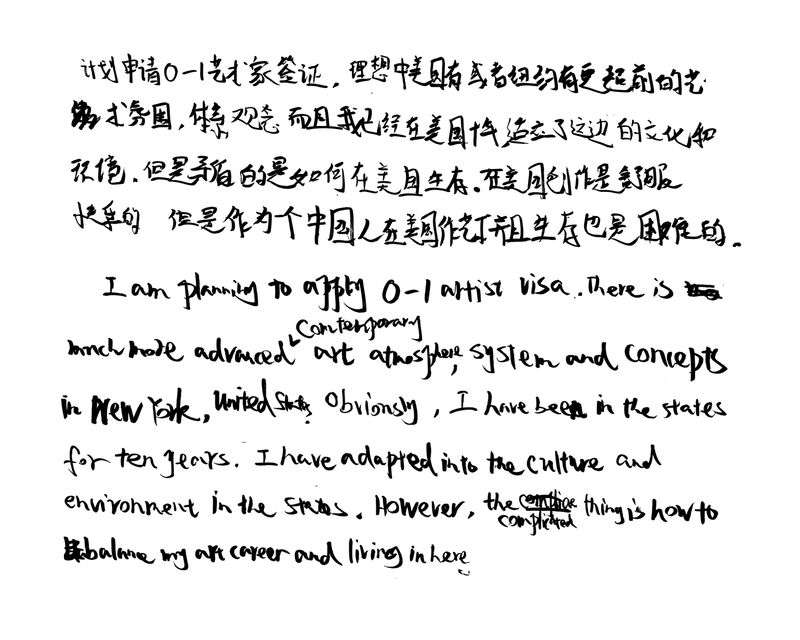 计划申请O-1艺术家签证，理想中美国有或者纽约有更超前的艺
术氛围，体系 观念 而且我已经在美国十年 适应了这边的文化和
环境，但是矛盾的是如何在美国生存。在美国创作是舒服
快乐的 但是作为个中国人在美国作艺术且生存也是困难的。
I am planning to apply O-1 artist visa. There is
much more advanced contemporary art atmosphere, system and concepts
in New York, United States. Obviously, I have been in the states
for ten years. I have adapted into the culture and
environment in the states. However, the complicated thing is how to
balance my art career and living in here